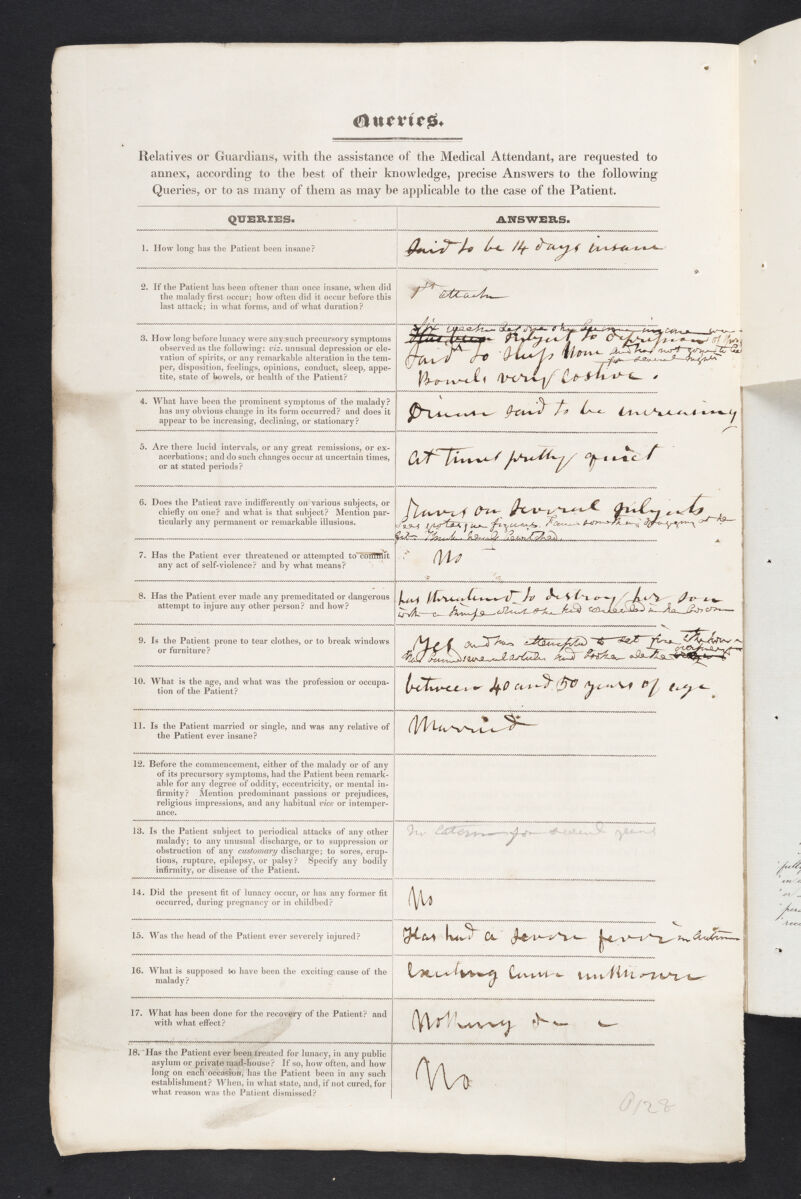 Queries.
Relatives or Guardians, with the assistance of the Medical Attendant, are requested to
annex, according to the best of their knowledge, precise Answers to the following
Queries, or to as many of them as may be applicable to the case of the Patient.
QUERIES.
ANSWERS.
1. How long has the Patient been insane?
Said to be 14 days insane
2. If the Patient has been oftener than once insane, when did
the malady first occur; how often did it occur before this
last attack; in what forms, and of what duration?
1st attack
3. How long before lunacy were any such precursory symptoms
observed as the following: viz. unusual depression or ele-
vation of spirits, or any remarkable alteration in the tem-
per, disposition, feelings, opinions, conduct, sleep, appe-
tite, state of bowels, or health of the Patient?
Six weeks
subject to depression of
Said to sleep and has not gone to bed
for several nights
Bowels very costive.
4. What have been the prominent symptoms of the malady?
has any obvious change in its form occurred? and does it
appear to be increasing, declining, or stationary?
Disease said to be increasing
5. Are there lucid intervals, or any great remissions, or ex-
acerbations; and do such changes occur at uncertain times,
or at stated periods?
At times pretty quiet
6. Does the Patient rave indifferently on various subjects, or
chiefly on one? and what is that subject? Mention par-
ticularly any permanent or remarkable illusions.
Raves on several subjects
Sees grotesque figures.
bewitched.
7. Has the Patient ever threatened or attempted to commit
any act of self-violence? and by what means?
No
8. Has the Patient ever made any premeditated or dangerous
attempt to injure any other person? and how?
has threatened to destroy her son
with a knife which she had concealed in her bosom
9. Is the Patient prone to tear clothes, or to break windows
or furniture?
Yes and has attempted to set fire
several and broken all the
10. What is the age, and what was the profession or occupa-
tion of the Patient?
between 40 and 50 years of age.
11. Is the Patient married or single, and was any relative of
the Patient ever insane?
Married
12. Before the commencement, either of the malady or of any
of its precursory symptoms, had the Patient been remark-
able for any degree of oddity, eccentricity, or mental in-
firmity? Mention predominant passions or prejudices,
religious impressions, and any habitual vice or intemper-
ance.
13. Is the Patient subject to periodical attacks of any other
malady; to any unusual discharge, or to suppression or
obstruction of any customary discharge; to sores, erup-
tions, rupture, epilepsy, or palsy? Specify any bodily
infirmity, or disease of the Patient.
No for several years
14. Did the present fit of lunacy occur, or has any former fit
occurred, during pregnancy or in childbed?
No
15. Was the head of the Patient ever severely injured?
Has had a severe fever in Autumn
16. What is supposed to have been the exciting cause of the
malady?
Exciting cause unknown
17. What has been done for the recovery of the Patient? and
with what effect?
Nothing
18. Has the Patient ever been treated for lunacy, in any public
asylum or private mad-house? If so, how often, and how
long on each occasion, has the Patient been in any such
establishment? When, in what state, and, if not cured, for
what reason was the Patient dismissed?
No